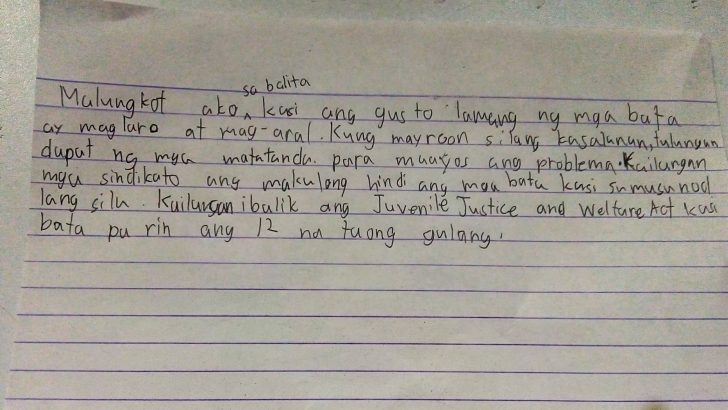 sa balita
Malungkot ako, kasi ang gusto lamang ng mga bata
ay maglaro at mag-aral. Kung mayroon silang kasalanan, tulungan
dapat ng mga matatanda. para maayos ang problema. Kailangan
mga sindikato ang makulong hindi ang mga bata kasi sumusunod
lang sila. Kailangan ibalik ang Juvenile Justice and Welfare Act kasi
bata pa rin ang 12 na taong gulang.